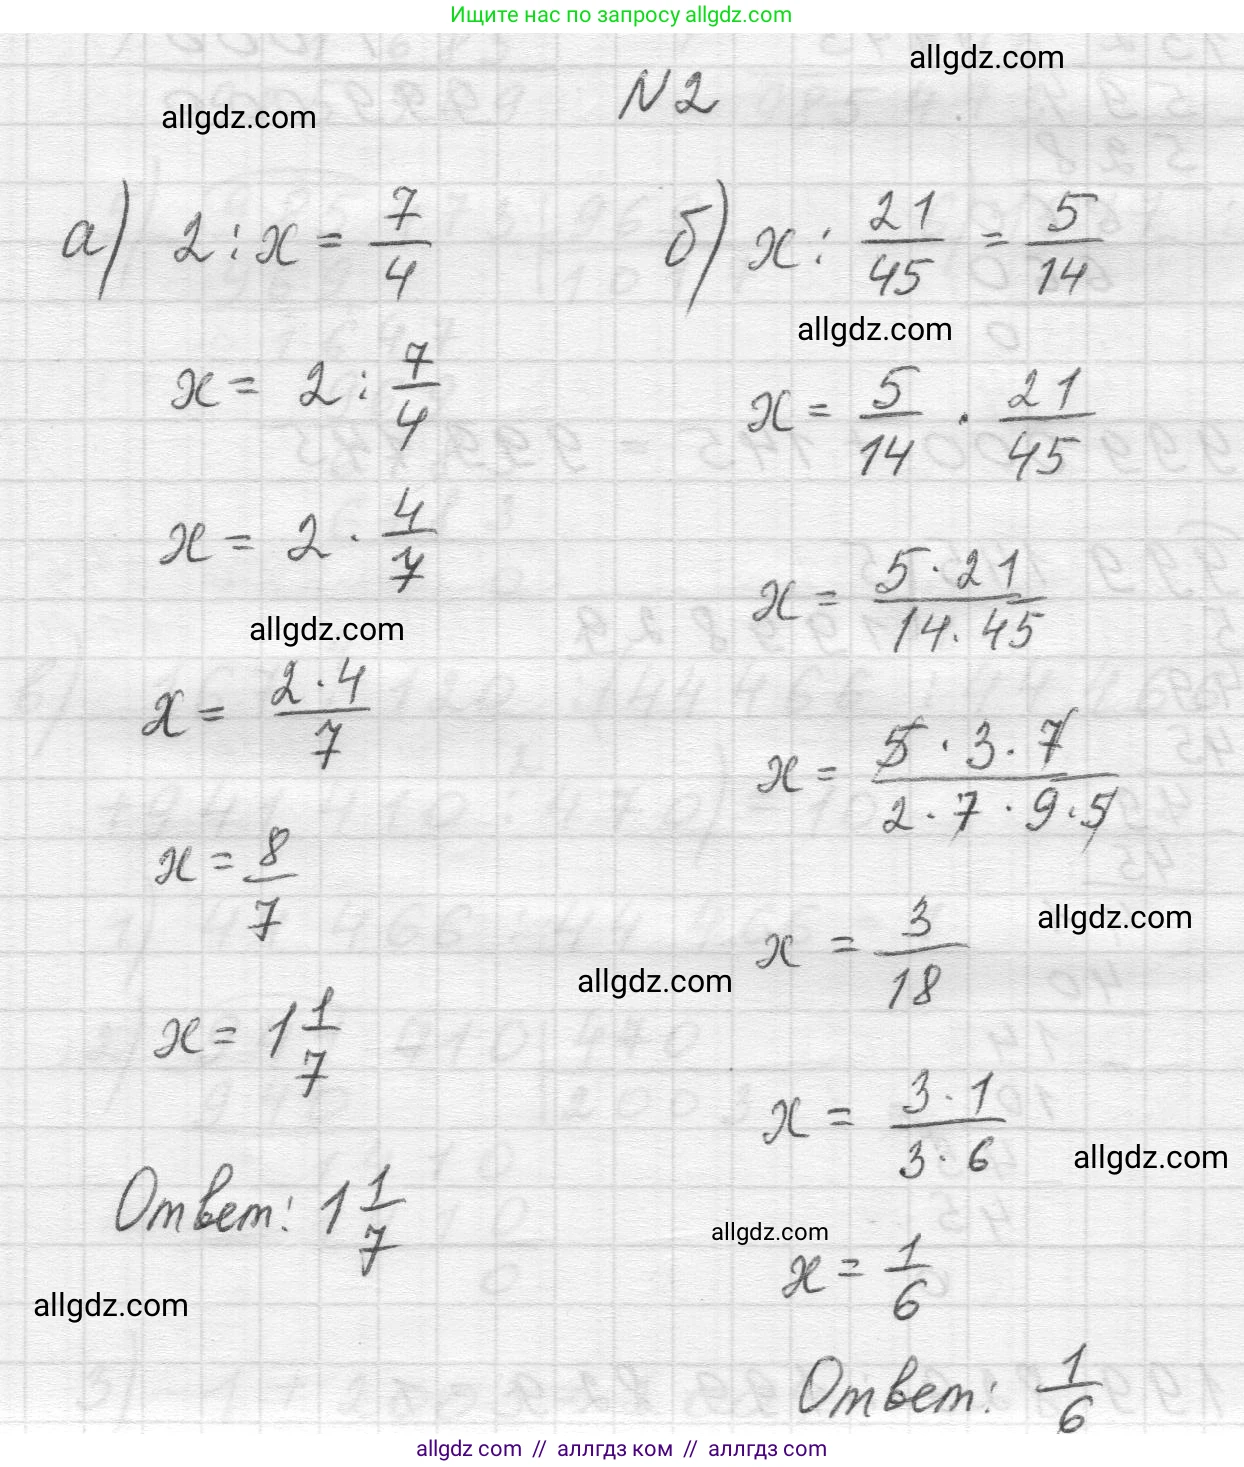 Ищите нас по запросу allgdz.com
allgdz.com
allgdz.com
N 2
а) 2 : x = 7/4
x = 2 : 7/4
x = 2 · 4/7
allgdz.com
x = 2·4/7
x = 8/7
x = 1 1/7
Ответ: 1 1/7
allgdz.com
б) x : 21/45 = 5/14
allgdz.com
x = 5/14 · 21/45
x = 5·21/14·45
x = 5·3·7/2·7·9·5
allgdz.com
x = 3/18
allgdz.com
x = 3·1/3·6
allgdz.com
allgdz.com
x = 1/6
Ответ: 1/6
allgdz.com // аллгдз ком // аллгдз.com